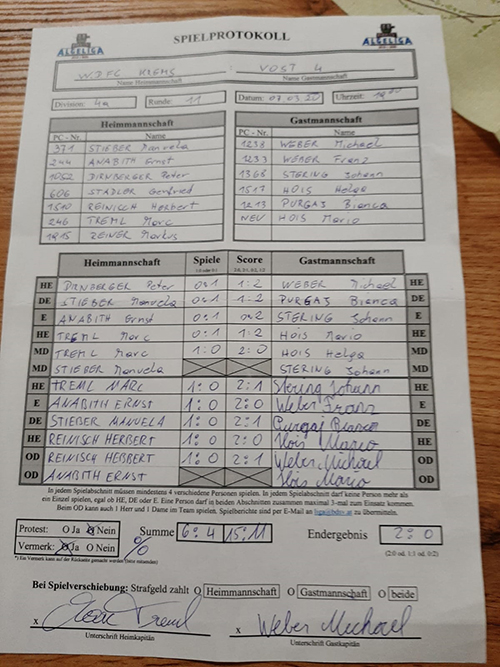 ALGELIGA SPIELPROTOKOLL ALGELIGA
W.DFC KREMS : VOST 4
Name Heimmannschaft Name Gastmannschaft
Division: 4a Runde: 11 Datum: 07.03.20 Uhrzeit: 19⁰⁰
Heimmannschaft Gastmannschaft
PC - Nr. Name PC - Nr. Name
371 STIEBER Manuela 1238 WEBER Michael
244 ANABITH Ernst 1233 WEBER Franz
1052 DIRNBERGER Peter 1368 STERING Johann
606 STADLER Gottfried 1517 HOIS Helga
1510 REINISCH Herbert 1213 PURGAJ Bianca
246 TREML Marc NEU HOIS Mario
1915 ZEINER Markus
Heimmannschaft Spiele Score Gastmannschaft
1:0 oder 0:1 2:0, 2:1, 0:2, 1:2
HE DIRNBERGER Peter 0:1 1:2 WEBER Michael HE
DE STIEBER Manuela 0:1 1:2 PURGAJ Bianca DE
E ANABITH Ernst 0:1 0:2 STERING Johann E
HE TREML Marc 0:1 1:2 HOIS Mario HE
MD TREML Marc 1:0 2:0 HOIS Helga MD
MD STIEBER Manuela STERING Johann MD
HE TREML MARC 1:0 2:1 Stering Johann HE
E ANABITH ERNST 1:0 2:0 Weber Franz E
DE STIEBER MANUELA 1:0 2:1 Purgaj Bianca DE
HE REINISCH HERBERT 1:0 2:0 Hois Mario HE
OD REINISCH HERBERT 1:0 2:1 Weber Michael OD
OD ANABITH ERNST Hois Mario OD
In jedem Spielabschnitt müssen mindestens 4 verschiedene Personen spielen. In jedem Spielabschnitt darf keine Person mehr als
ein Einzel spielen, egal ob HE, DE oder E. Eine Person darf in beiden Abschnitten zusammen maximal 3-mal zum Einsatz kommen.
Beim OD kann auch 1 Herr und 1 Dame im Team spielen. Spielberichte sind per E-Mail an zu übermitteln.
Protest: O Ja O Nein Summe 6:4 15:11 Endergebnis 2:0
Vermerk: O Ja O Nein (2:0 od. 1:1 od. 0:2)
*) Ein Vermerk kann auf der Rückseite gemacht werden
Bei Spielverschiebung: Strafgeld zahlt O Heimmannschaft O Gastmannschaft O beide
x Treml x Weber Michael
Unterschrift Heimkapitän Unterschrift Gastkapitän